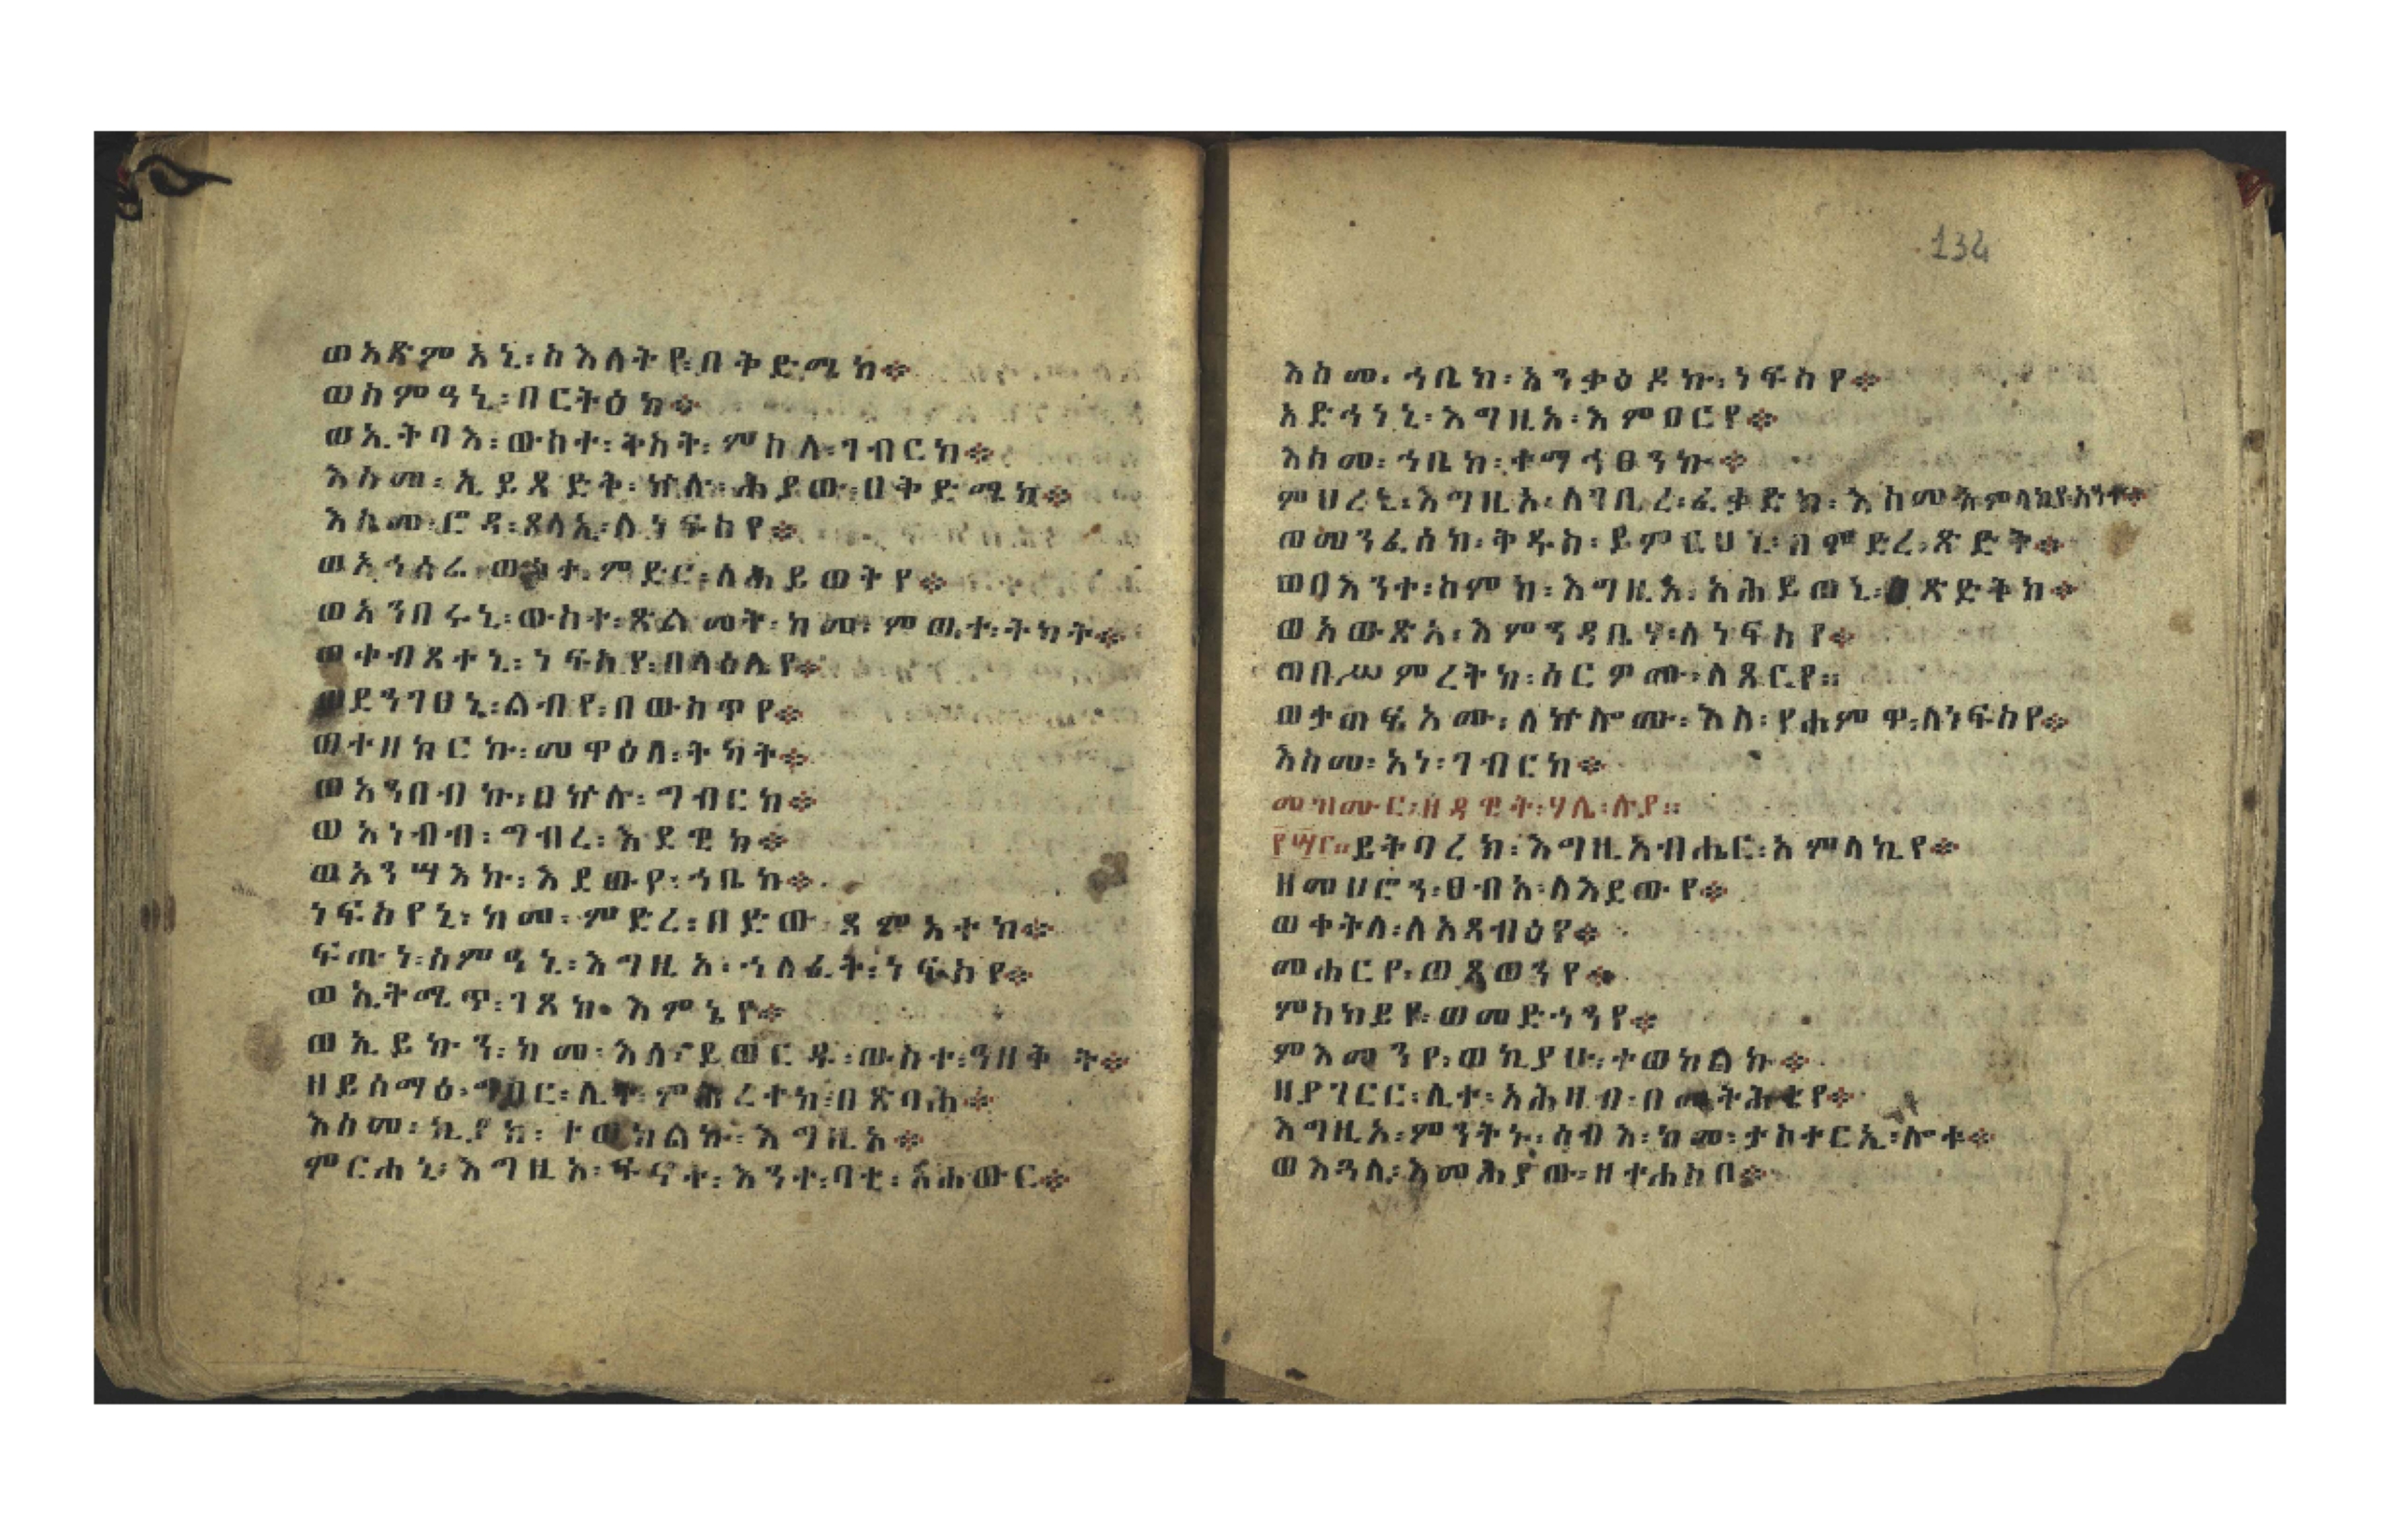 ወአጽምአኒ፡ስእለትየ፡በቅድሜከ።
ወስምዓኒ፡በርትዕከ።
ወኢትባእ፡ውስተ፡ቅስት፡ምስለ፡ገብርከ።
እስመ፡ኢይጸድቅ፡ኵሉ፡ሕያው፡በቅድሜከ።
እስመ፡ሮዳ፡ጸላኢ፡ለነፍስየ።
ወአኅሰራ፡ውስተ፡ምድር፡ለሕይወትየ።
ወአንበሩኒ፡ውስተ፡ጽልመት፡ከመ፡ምዉተ፡ትካት።
ወቀብጸተኒ፡ነፍስየ፡በላዕሌየ።
ወደንገፀኒ፡ልብየ፡በውስጥየ።
ወተዘከርኩ፡መዋዕለ፡ትካት።
ወአንበብኩ፡በኵሉ፡ግብርከ።
ወአነብብ፡ግብረ፡እደዊከ።
ወአንሣእኩ፡እደውየ፡ኀቤከ።
ነፍስየኒ፡ከመ፡ምድረ፡በድው፡ጸምአተከ።
ፍጡነ፡ስምዓኒ፡እግዚአ፡ኀለፈት፡ነፍስየ።
ወኢትሚጥ፡ገጸከ፡እምኔየ።
ወኢይኩን፡ከመ፡እለ፡ይወርዱ፡ውስተ፡ዓዘቅት።
ዘይሰማዕ፡ግበር፡ሊተ፡ምሕረተከ፡በጽባሕ።
እስመ፡ኪያከ፡ተወከልኩ፡እግዚአ።
ምርሐኒ፡እግዚአ፡ፍኖተ፡እንተ፡ባቲ፡አሐውር።
134
እስመ፡ኀቤከ፡አንቃዕዶኩ፡ነፍስየ።
አድኅነኒ፡እግዚአ፡እምፀርየ።
እስመ፡ኀቤከ፡ተማኅፀንኩ።
ምህረኒ፡እግዚአ፡ለገቢረ፡ፈቃድከ፡እስመ፡አምላኪየ፡አንተ።
ወመንፈስከ፡ቅዱስ፡ይምርሀኒ፡በምድረ፡ጽድቅ።
ወበእንተ፡ስምከ፡እግዚአ፡አሕይወኒ፡በጽድቅከ።
ወአውጽአ፡እምንዳቤሃ፡ለነፍስየ።
ወበሥምረትከ፡ሰርዎሙ፡ለጸርየ።
ወታጠፍኦሙ፡ለኵሎሙ፡እለ፡የሐምዋ፡ለነፍስየ።
እስመ፡አነ፡ገብርከ።
መዝሙር፡ዘዳዊት፡ሃሌ፡ሉያ።
ይትባረክ፡እግዚአብሔር፡አምላኪየ።
ዘመሀሮን፡ፀብአ፡ለእደውየ።
ወቀትለ፡ለአጻብዕየ።
መሐርየ፡ወጸወንየ።
ምስካይየ፡ወመድኀንየ።
ምእመንየ፡ወኪያሁ፡ተወከልኩ።
ዘያገርር፡ሊተ፡አሕዛብ፡በመትሕቴየ።
እግዚአ፡ምንትኑ፡ሰብእ፡ከመ፡ታስተርኢ፡ሎቱ።
ወእጓለ፡እመሕያው፡ዘተሐስቦ።